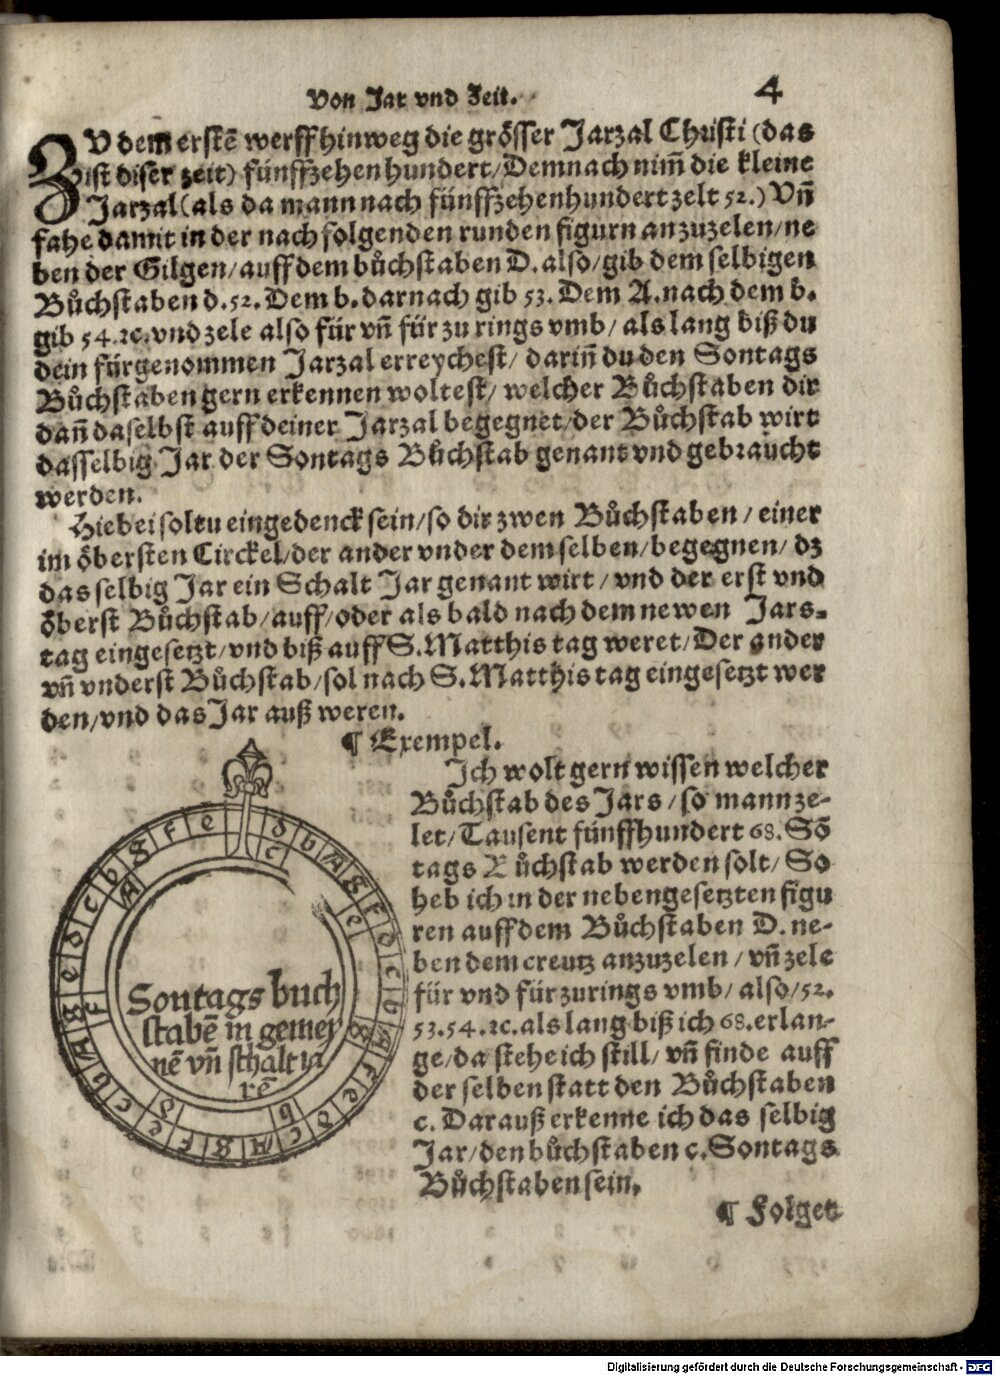 Von Jar vnd Zeit. 4
ZV dem erstē werff hinweg die grösser Jarzal Christi (das
ist diser zeit) fünffzehen hundert/Demnach nim̄ die kleine
Jarzal (als da mann nach fünffzehenhundert zelt 52.) Vn̄
fahe damit in der nach folgenden runden figurn anzuzelen/ne
ben der Gilgen/auff dem bůchstaben D. also/gib dem selbigen
Bůchstaben d. 52. Dem b. darnach gib 53. Dem A. nach dem b.
gib 54. ꝛc. vnd zele also für vn̄ für zu rings vmb/ als lang biß du
dein fürgenommen Jarzal erreychest/ darin̄ du den Sontags
Bůchstaben gern erkennen woltest/ welcher Bůchstaben dir
dan̄ daselbst auff deiner Jarzal begegnet/der Bůchstab wirt
dasselbig Jar der Sontags Bůchstab genant vnd gebraucht
werden.
Hiebei soltu eingedenck sein/so dir zwen Bůchstaben/ einer
im öbersten Circkel/der ander vnder dem selben/begegnen/ dz
das selbig Jar ein Schalt Jar genant wirt/ vnd der erst vnd
öberst Bůchstab/auff/oder als bald nach dem newen Jars-
tag eingesetzt/vnd biß auff S. Matthis tag weret/Der ander
vn̄ vnderst Bůchstab/sol nach S. Matthis tag eingesetzt wer
den/vnd das Jar auß weren.
¶ Exempel.
Ich wolt gern wissen welcher
Bůchstab des Jars/so mann ze-
let/Tausent fünffhundert 68. Sō
tags Bůchstab werden solt/ So
heb ich in der nebengesetzten figu
ren auff dem Bůchstaben D. ne-
ben dem creutz anzuzelen/vn̄ zele
für vnd für zu rings vmb/ also/52.
53. 54. ꝛc. als lang biß ich 68. erlan-
ge/da stehe ich still/ vn̄ finde auff
der selben statt den Bůchstaben
c. Darauß erkenne ich das selbig
Jar/den bůchstaben c. Sontags
Bůchstaben sein.
¶ Folget
d b A g f d c b A f e d c A g f e c b A g e d c b g f e
c e g b d f A
Sontags buch
stabē in gemey
nē vn̄ schalt ja
rē
Digitalisierung gefördert durch die Deutsche Forschungsgemeinschaft - DFG